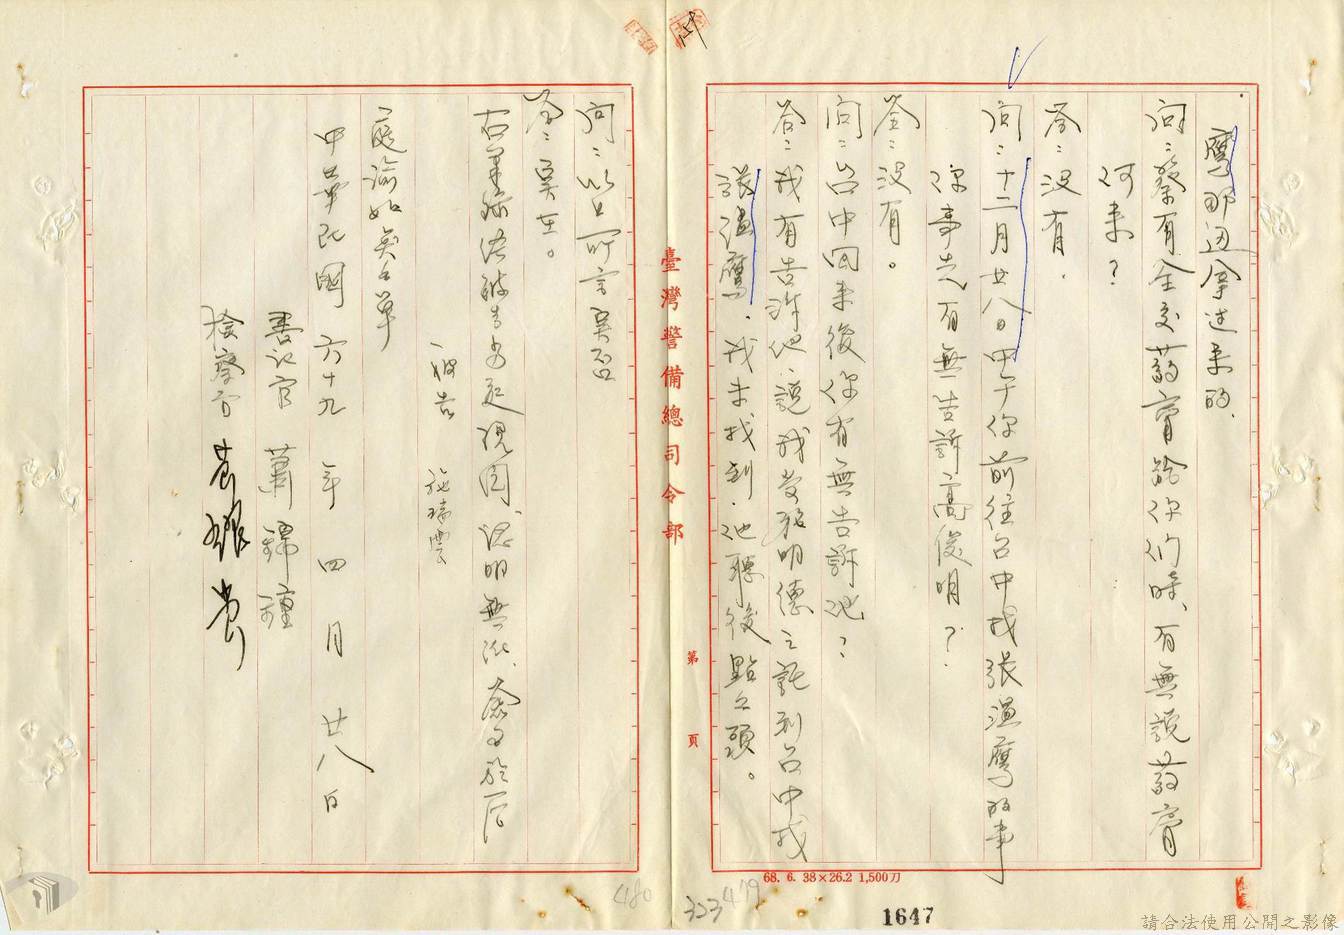 鷹那边拿过来的.
問:蔡有全交葯膏給你们時、有無說葯膏
何来?
答:没有.
問:十二月廿八日中午你前往台中找張温鷹的事
你事先有無告訴高俊明?
答:没有。
問:台中回来後你有無告訴他?
答:我有告訴他、說我受施明德之託到台中找
張温鷹.我未找到.他聽後點々頭。
問:以上所言实否
答:实在。
右筆錄經被告当庭閱、認明無訛、簽名於后
被告 施瑞雲
庭諭如
中華民國六十九年四月廿八日
書記官 蕭錦鍾
檢察官
臺灣警備總司令部
第 頁
68. 6. 38×26.2 1,500刀
480
323
479
1647
請合法使用公開之影像